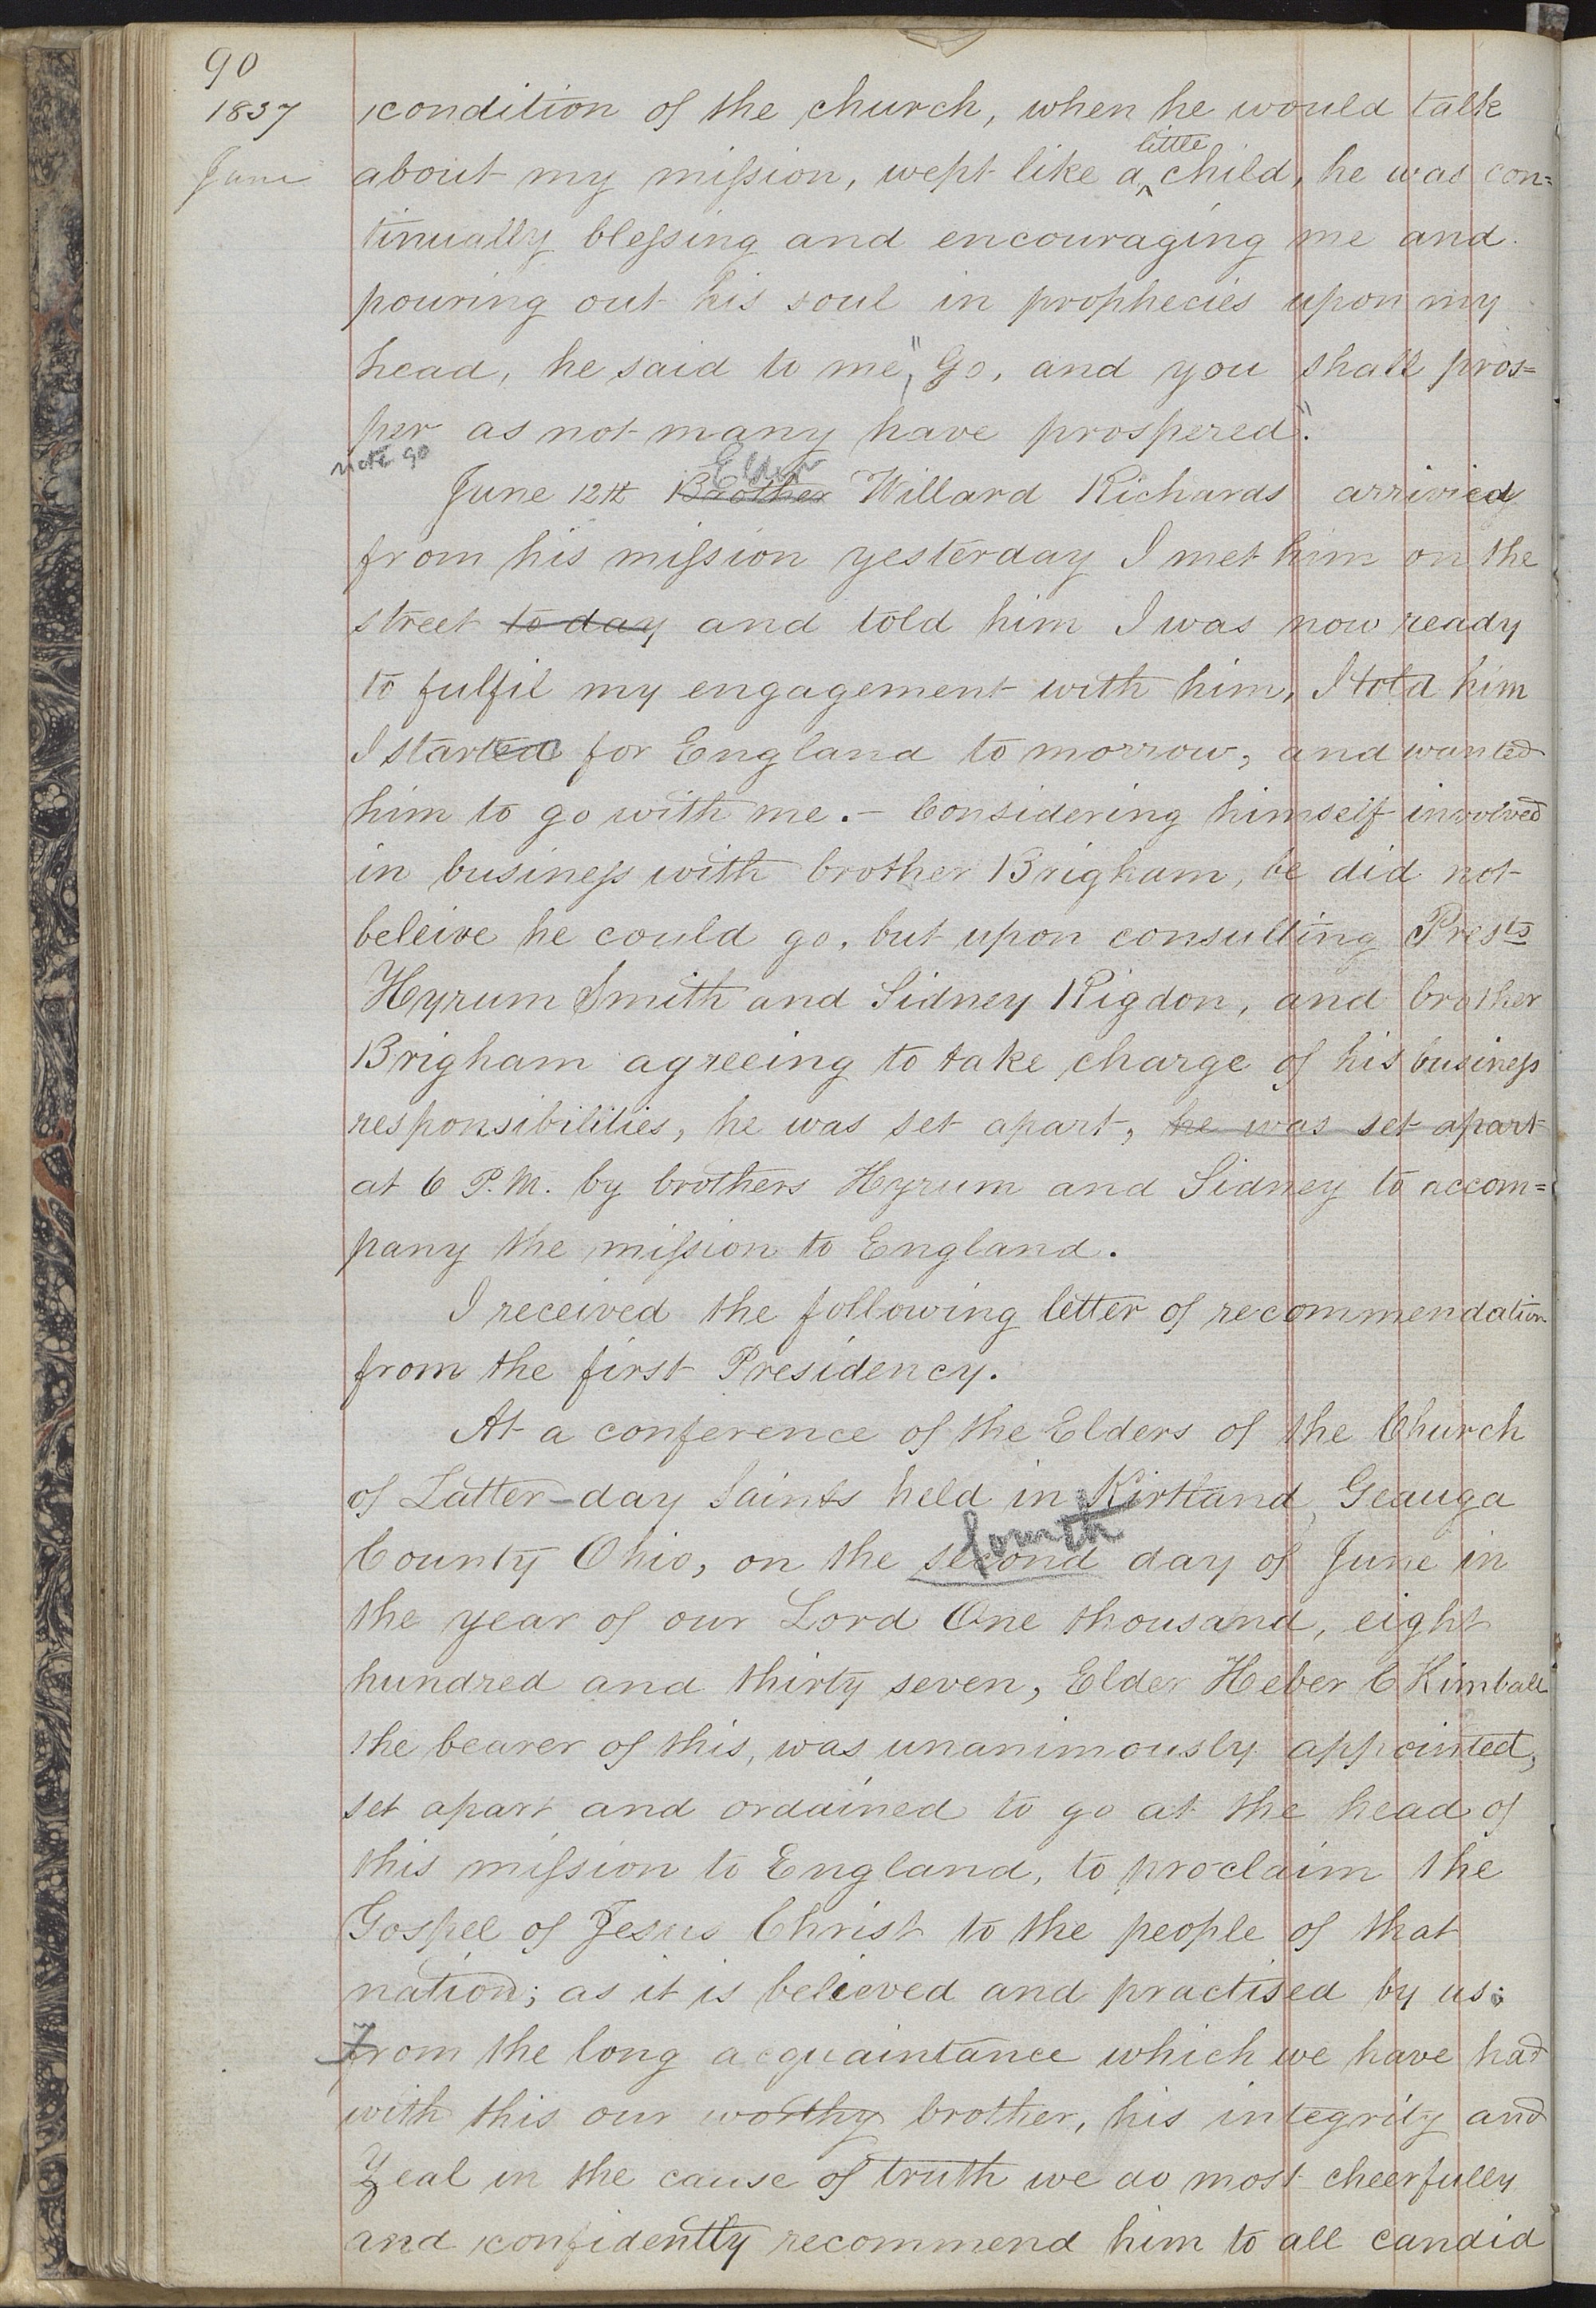 90
1837
June
condition of the church, when he would talk
about my mission, wept like a little child, he was con=
tinually blessing and encouraging me and
pouring out his soul in prophecies upon my
head, he said to me, "Go, and you shall pros=
per as not many have prospered".
note 90
June 12th Brother Elder Willard Richards arrivied
from his mission yesterday I met him on the
street to day and told him I was now ready
to fulfil my engagement with him, I told him
I started for England to morrow, and wanted
him to go with me. - Considering himself involved
in business with brother Brigham, he did not
beleive he could go, but upon consulting Pres.ts
Hyrum Smith and Sidney Rigdon, and brother
Brigham agreeing to take charge of his business
responsibilities, he was set apart, he was set apart
at 6 P.M. by brothers Hyrum and Sidney to accom=
pany the mission to England.
I received the following letter of recommendation
from the first Presidency.
At a conference of the Elders of the Church
of Latter-day Saints held in Kirtland, Geauga
County Ohio, on the second fourth day of June in
the year of our Lord One thousand, eight
hundred and thirty seven, Elder Heber C Kimball
the bearer of this, was unanimously appointed,
set apart and ordained to go at the head of
this mission to England, to proclaim the
Gospel of Jesus Christ to the people of that
nation; as it is believed and practised by us;
From the long acquaintance which we have had
with this our worthy brother, his integrity and
Zeal in the cause of truth we do most cheerfully
and confidently recommend him to all candid